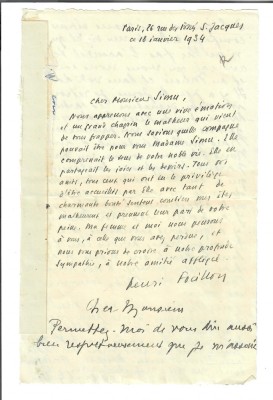 Paris, 16 rue des Fossés S. Jacques
ce 18 janvier 1934
Cher Monsieur Simu,
Nous apprenons avec une vive émotion,
et un grand chagrin le malheur qui vient
de vous frapper. Nous savions quelle compagne
pouvait être pour vous Madame Simu. Elle
comprenait le sens de votre noble vie. Elle en
partageait les joies et les devoirs. Tous vos
amis, tous ceux qui ont eu le privilège
d'être accueillis par Elle avec tant de
charmante bonté sentent combien vous êtes
malheureux et prennent leur part de votre
peine. Ma femme et moi nous pensons
à vous, à celle que vous avez perdue, et
nous vous prions de croire à notre profonde
sympathie, à notre amitié affligée
Henri Focillon
Cher Monsieur
Permettez-moi de vous dire aussi
bien respectueusement que je m'associe